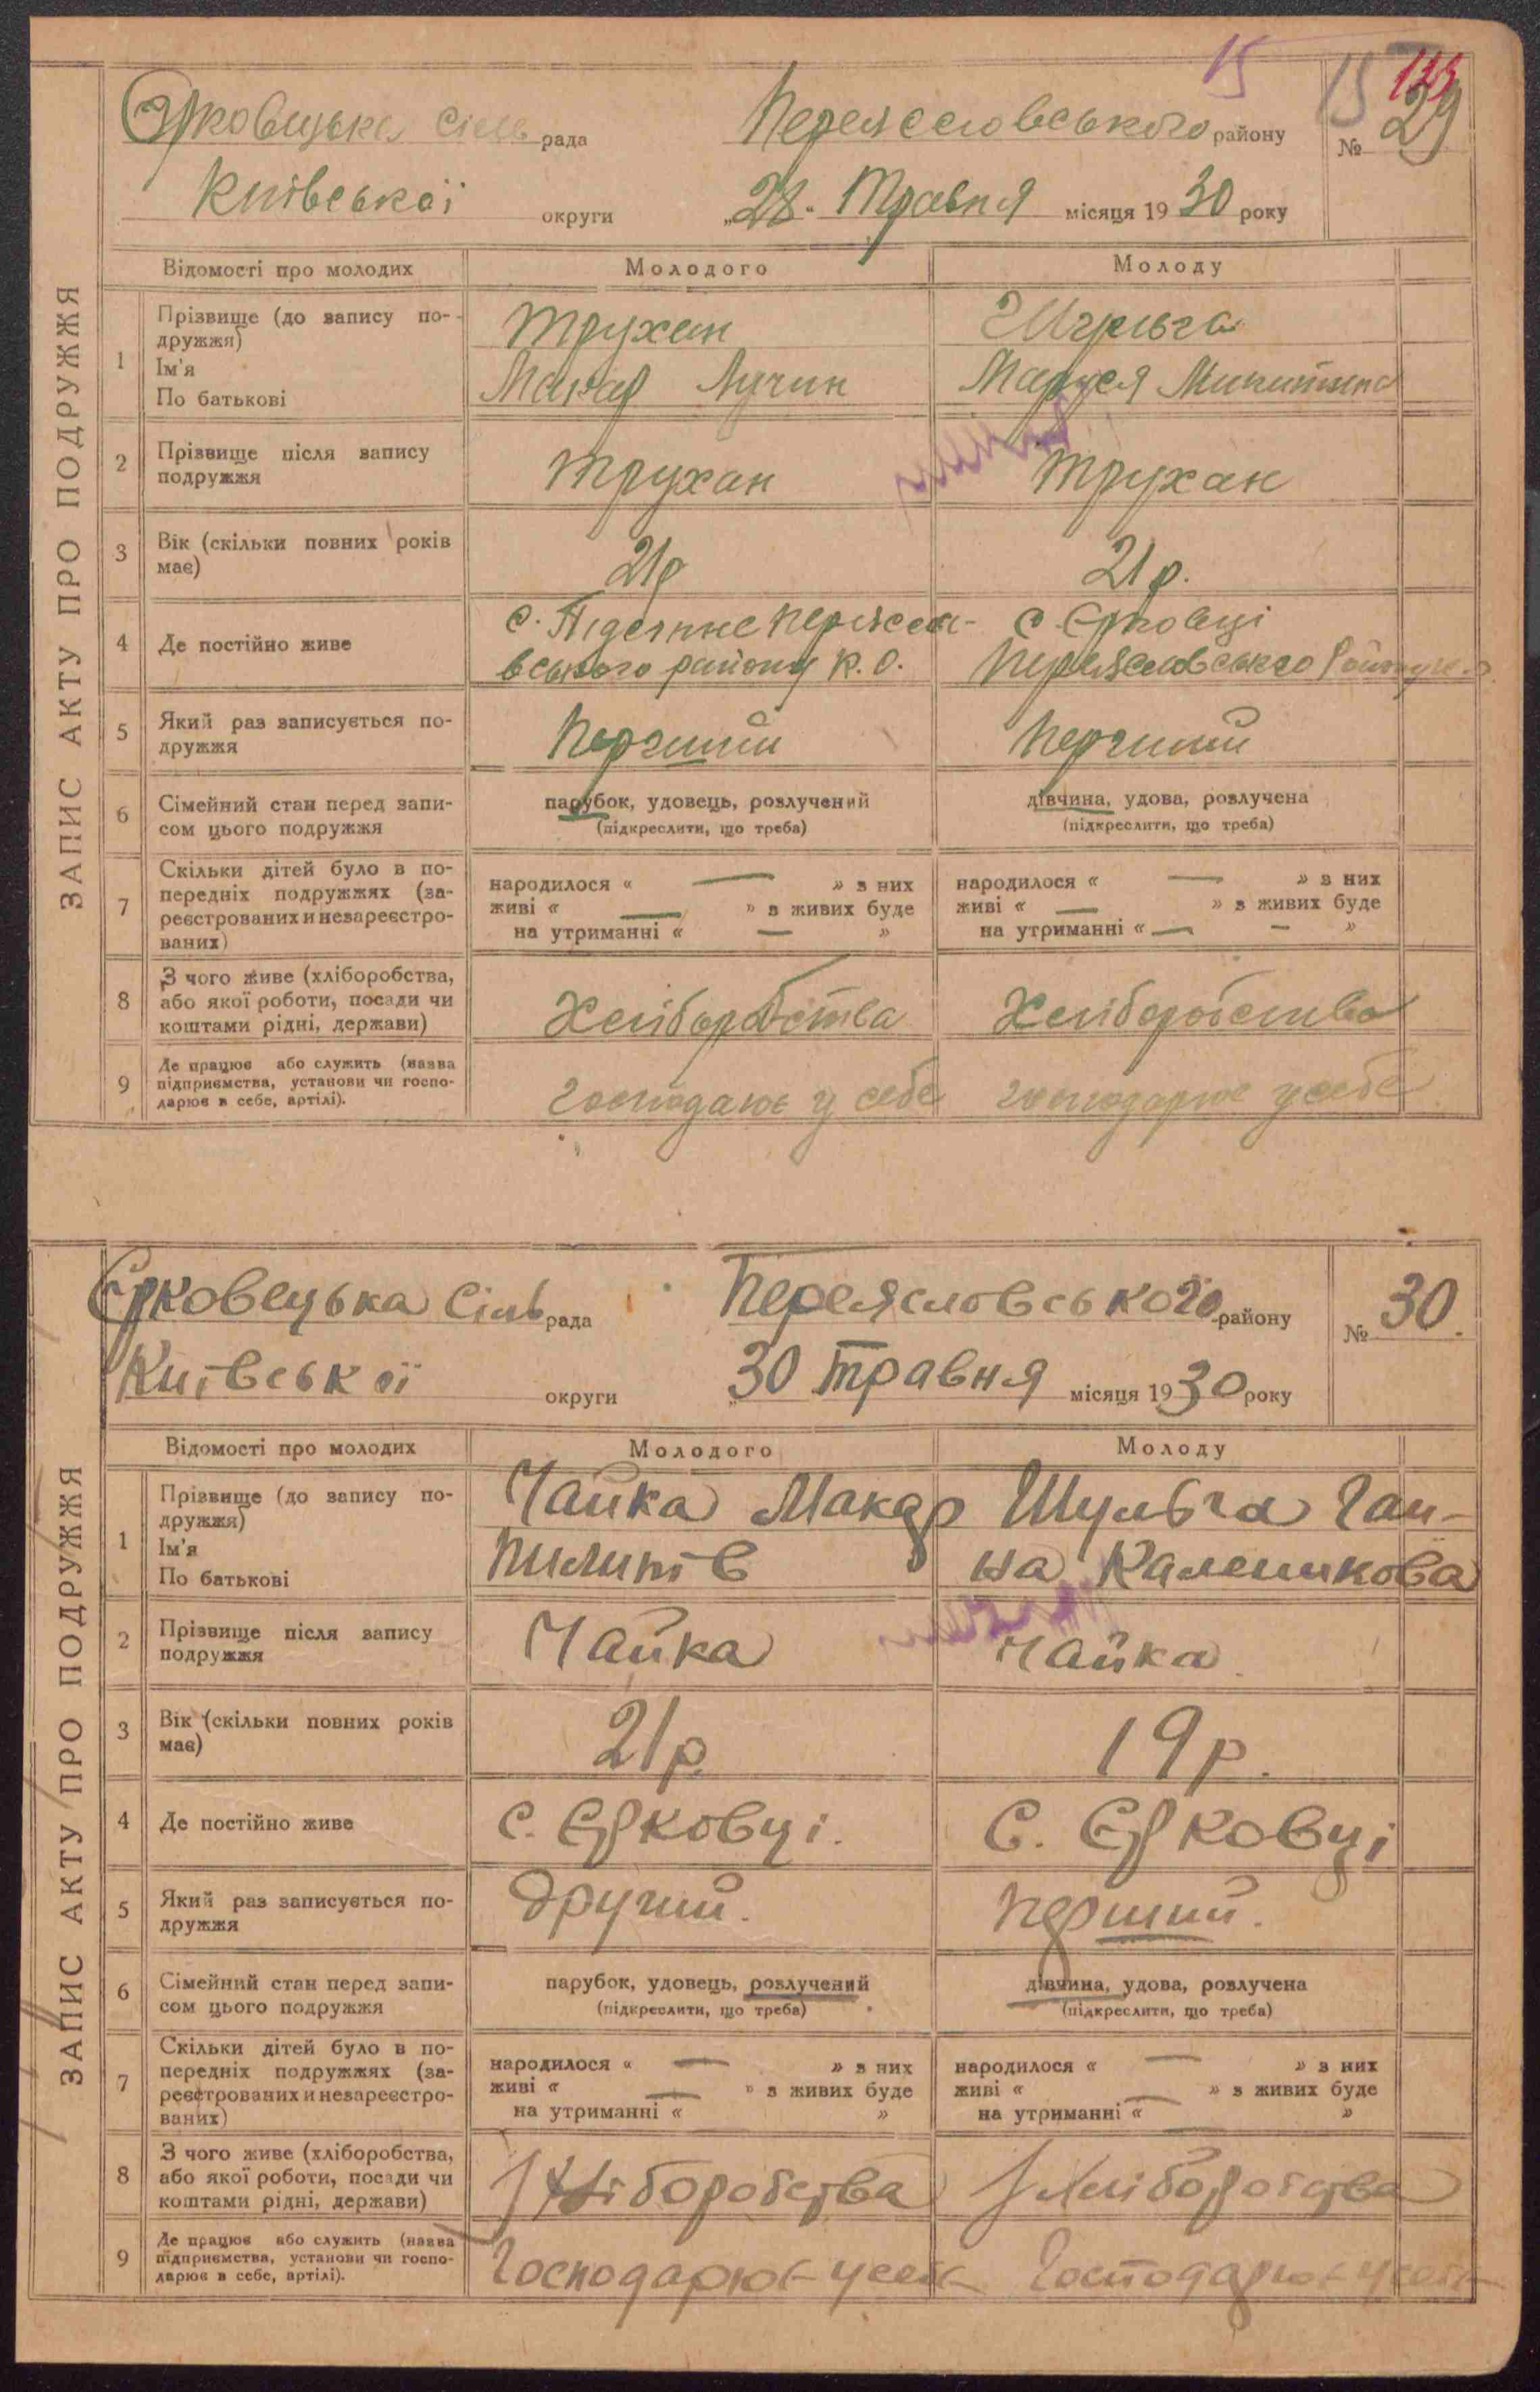 15 15 123
Єрковецька сіль рада Переяславського району № 29
Київської округи „28“ Травня місяця 1930 року
ЗАПИС АКТУ ПРО ПОДРУЖЖЯ
Відомості про молодих Молодого Молоду
1 Прізвище (до запису по-
дружжя)
Ім'я
По батькові
Трухан
Макар
Шульга
Маруся Микитина
2 Прізвище після запису
подружжя
Трухан Трухан
3 Вік (скільки повних років
має)
21р 21р.
4 Де постійно живе
с. Підсінне Переясла-
вського району К.О.
с. Єрковці
Переяславського Району
5 Який раз записується по-
дружжя
Перший Перший
6 Сімейний стан перед запи-
сом цього подружжя
парубок, удовець, розлучений
(підкреслити, що треба)
дівчина, удова, розлучена
(підкреслити, що треба)
7 Скільки дітей було в по-
передніх подружжях (за-
реєстрованих и незареєстро-
ваних)
народилося « — » з них
живі « — » з живих буде
на утриманні « — »
народилося « — » з них
живі « — » з живих буде
на утриманні « — — »
8 З чого живе (хліборобства,
або якої роботи, посади чи
коштами рідні, держави)
Хліборобства Хліборобства
9 Де працює або служить (назва
підприємства, установи чи госпо-
дарює в себе, артілі).
господарює у себе господарює у себе
Єрковецька Сіль рада Переяславського району № 30.
Київської округи „30 травня місяця 1930 року
ЗАПИС АКТУ ПРО ПОДРУЖЖЯ
Відомості про молодих Молодого Молоду
1 Прізвище (до запису по-
дружжя)
Ім'я
По батькові
Чайка Макар
Пилипів
Шульга Ган-
на Каленикова
2 Прізвище після запису
подружжя
Чайка Чайка.
3 Вік (скільки повних років
має)
21р. 19р.
4 Де постійно живе
с. Єрковці. С. Єрковці
5 Який раз записується по-
дружжя
Другий. Перший.
6 Сімейний стан перед запи-
сом цього подружжя
парубок, удовець, розлучений
(підкреслити, що треба)
дівчина, удова, розлучена
(підкреслити, що треба)
7 Скільки дітей було в по-
передніх подружжях (за-
реєстрованих и незареєстро-
ваних)
народилося « — » з них
живі « — » з живих буде
на утриманні « »
народилося « — » з них
живі « — » з живих буде
на утриманні « »
8 З чого живе (хліборобства,
або якої роботи, посади чи
коштами рідні, держави)
Хліборобства Хліборобства
9 Де працює або служить (назва
підприємства, установи чи госпо-
дарює в себе, артілі).
Господарює у себе Господарює у себе